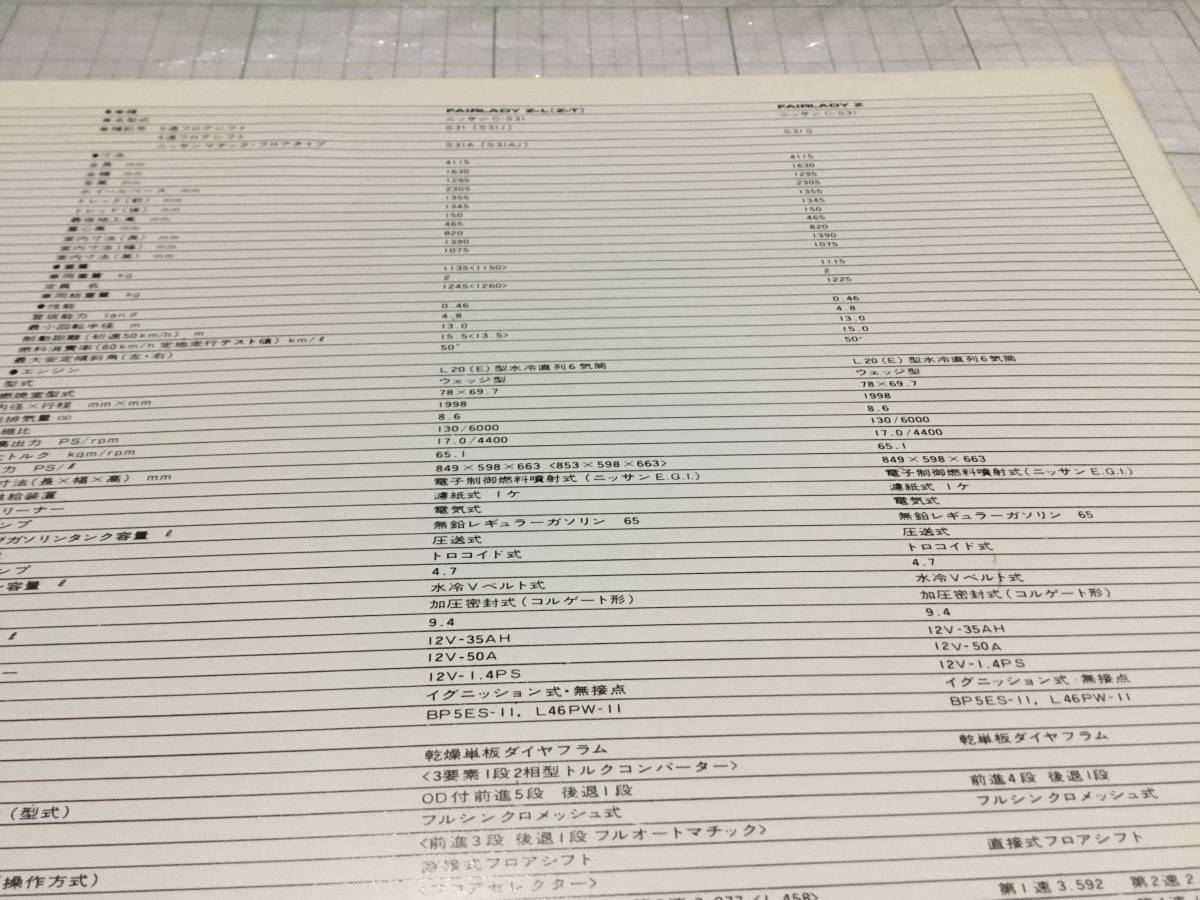 ●車種 FAIRLADY Z-L(Z-T) FAIRLADY Z
●名型式 ニッサンC-S31 ニッサンC-S31
●種記号 5速フロアシフト S31 [S31J]
4速フロアシフト S31S
ニッサンマチック・フロアタイプ S31A [S31AJ]
●寸法
全長 mm 4115 4115
全幅 mm 1630 1630
全高 mm 1295 1295
ホイールベース mm 2305 2305
トレッド(前) mm 1355 1355
トレッド(後) mm 1345 1345
最低地上高 mm 150 150
重心高 mm 465 465
室内寸法(長) mm 820 820
室内寸法(幅) mm 1390 1390
室内寸法(高) mm 1075 1075
●重量
車両重量 kg 1135<1150> 1115
定員 名 2 2
車両総重量 kg 1245<1260> 1225
●性能
登坂能力 tanθ 0.46 0.46
最小回転半径 m 4.8 4.8
制動距離(初速50km/h) m 13.0 13.0
燃料消費率(60km/h 定地走行テスト値) km/ℓ 15.5<13.5> 15.0
最大安定傾斜角(左・右) 50° 50°
●エンジン
型式 L20(E)型水冷直列6気筒 L20(E)型水冷直列6気筒
燃焼室型式 ウェッジ型 ウェッジ型
内径×行程 mm×mm 78×69.7 78×69.7
排気量 cc 1998 1998
縮比 8.6 8.6
高出力 PS/rpm 130/6000 130/6000
大トルク kgm/rpm 17.0/4400 17.0/4400
力 PS/ℓ 65.1 65.1
寸法(長×幅×高) mm 849×598×663 <853×598×663> 849×598×663
供給装置 電子制御燃料噴射式(ニッサンE.G.I.) 電子制御燃料噴射式(ニッサンE.G.I.)
リーナー 濾紙式 1ケ 濾紙式 1ケ
ンプ 電気式 電気式
びガソリンタンク容量 ℓ 無鉛レギュラーガソリン 65 無鉛レギュラーガソリン 65
圧送式 圧送式
ンプ トロコイド式 トロコイド式
ン容量 ℓ 4.7 4.7
水冷Vベルト式 水冷Vベルト式
加圧密封式(コルゲート形) 加圧密封式(コルゲート形)
ℓ 9.4 9.4
12V-35AH 12V-35AH
12V-50A 12V-50A
ー 12V-1.4PS 12V-1.4PS
イグニッション式・無接点 イグニッション式・無接点
BP5ES-11, L46PW-11 BP5ES-11, L46PW-11
乾燥単板ダイヤフラム 乾単板ダイヤフラム
<3要素1段2相型トルクコンバーター>
(型式) OD付前進5段 後退1段 前進4段 後退1段
フルシンクロメッシュ式 フルシンクロメッシュ式
<前進3段 後退1段 フルオートマチック>
(操作方式) 直接式フロアシフト 直接式フロアシフト
フロアセレクター>
3.077<1.458> 第1速3.592 第2速2